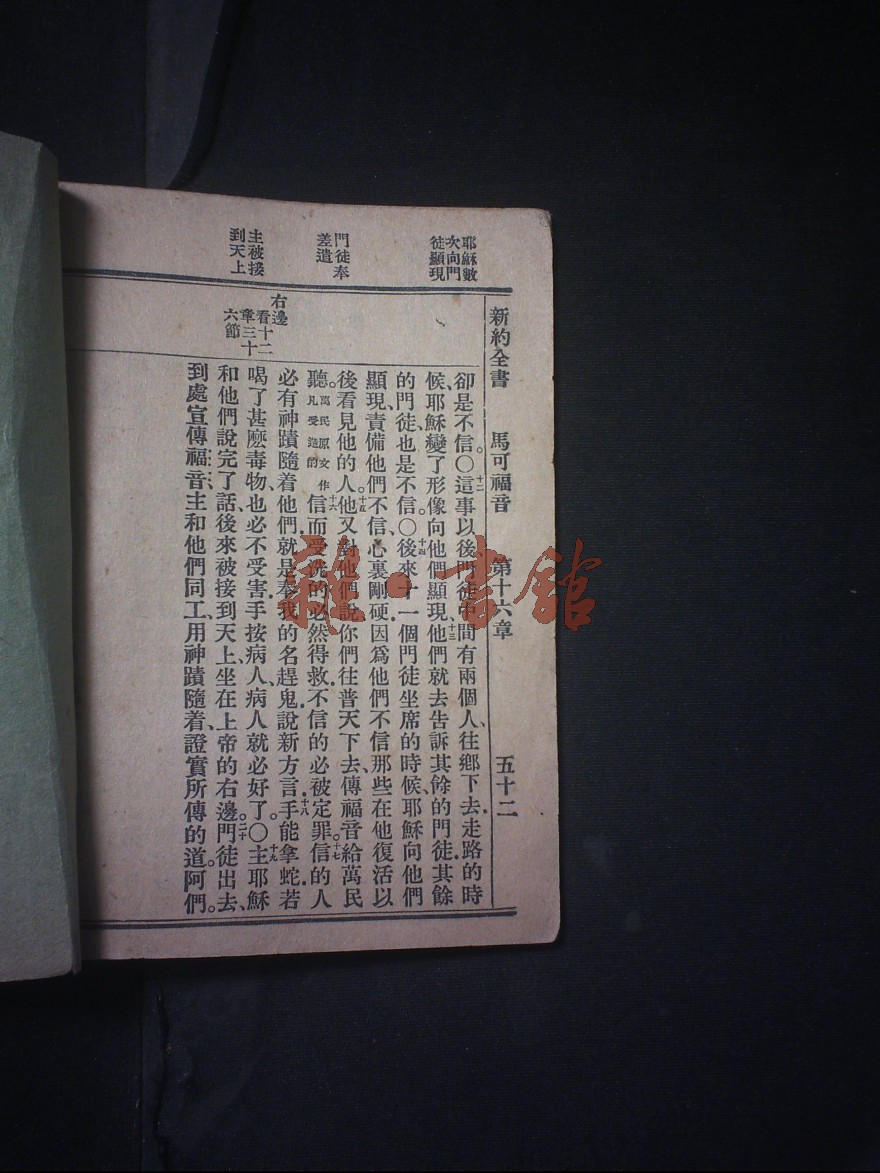 新約全書 馬可福音 第十六章 五十二
耶穌數
次向門
徒顯現
門徒奉
差遣
主被接
到天上
右邊
看十二
章三十
六節
卻是不信。〇十二這事以後門徒中間有兩個人、往鄉下去.走路的時
候、耶穌變了形像向他們顯現、十三他們就去告訴其餘的門徒.其餘
的門徒、也是不信。〇十四後來十一個門徒坐席的時候、耶穌向他們
顯現、責備他們不信、心裏剛硬.因爲他們不信那些在他復活以
後看見他的人。十五他又對他們說、你們往普天下去、傳福音給萬民
聽。萬民原文作凡受造的十六信而受洗的必然得救.不信的必被定罪。十七信的人
必有神蹟隨着他們.就是奉我的名趕鬼.說新方言.十八手能拿蛇.若
喝了甚麽毒物、也必不受害.手按病人、病人就必好了。〇十九主耶穌
和他們說完了話、後來被接到天上、坐在上帝的右邊。二十門徒出去、
到處宣傳福音.主和他們同工、用神蹟隨着、證實所傳的道。阿們。
雜·書館